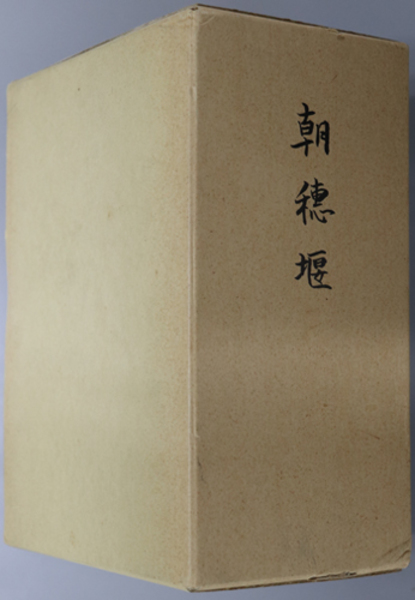 朝穂堰